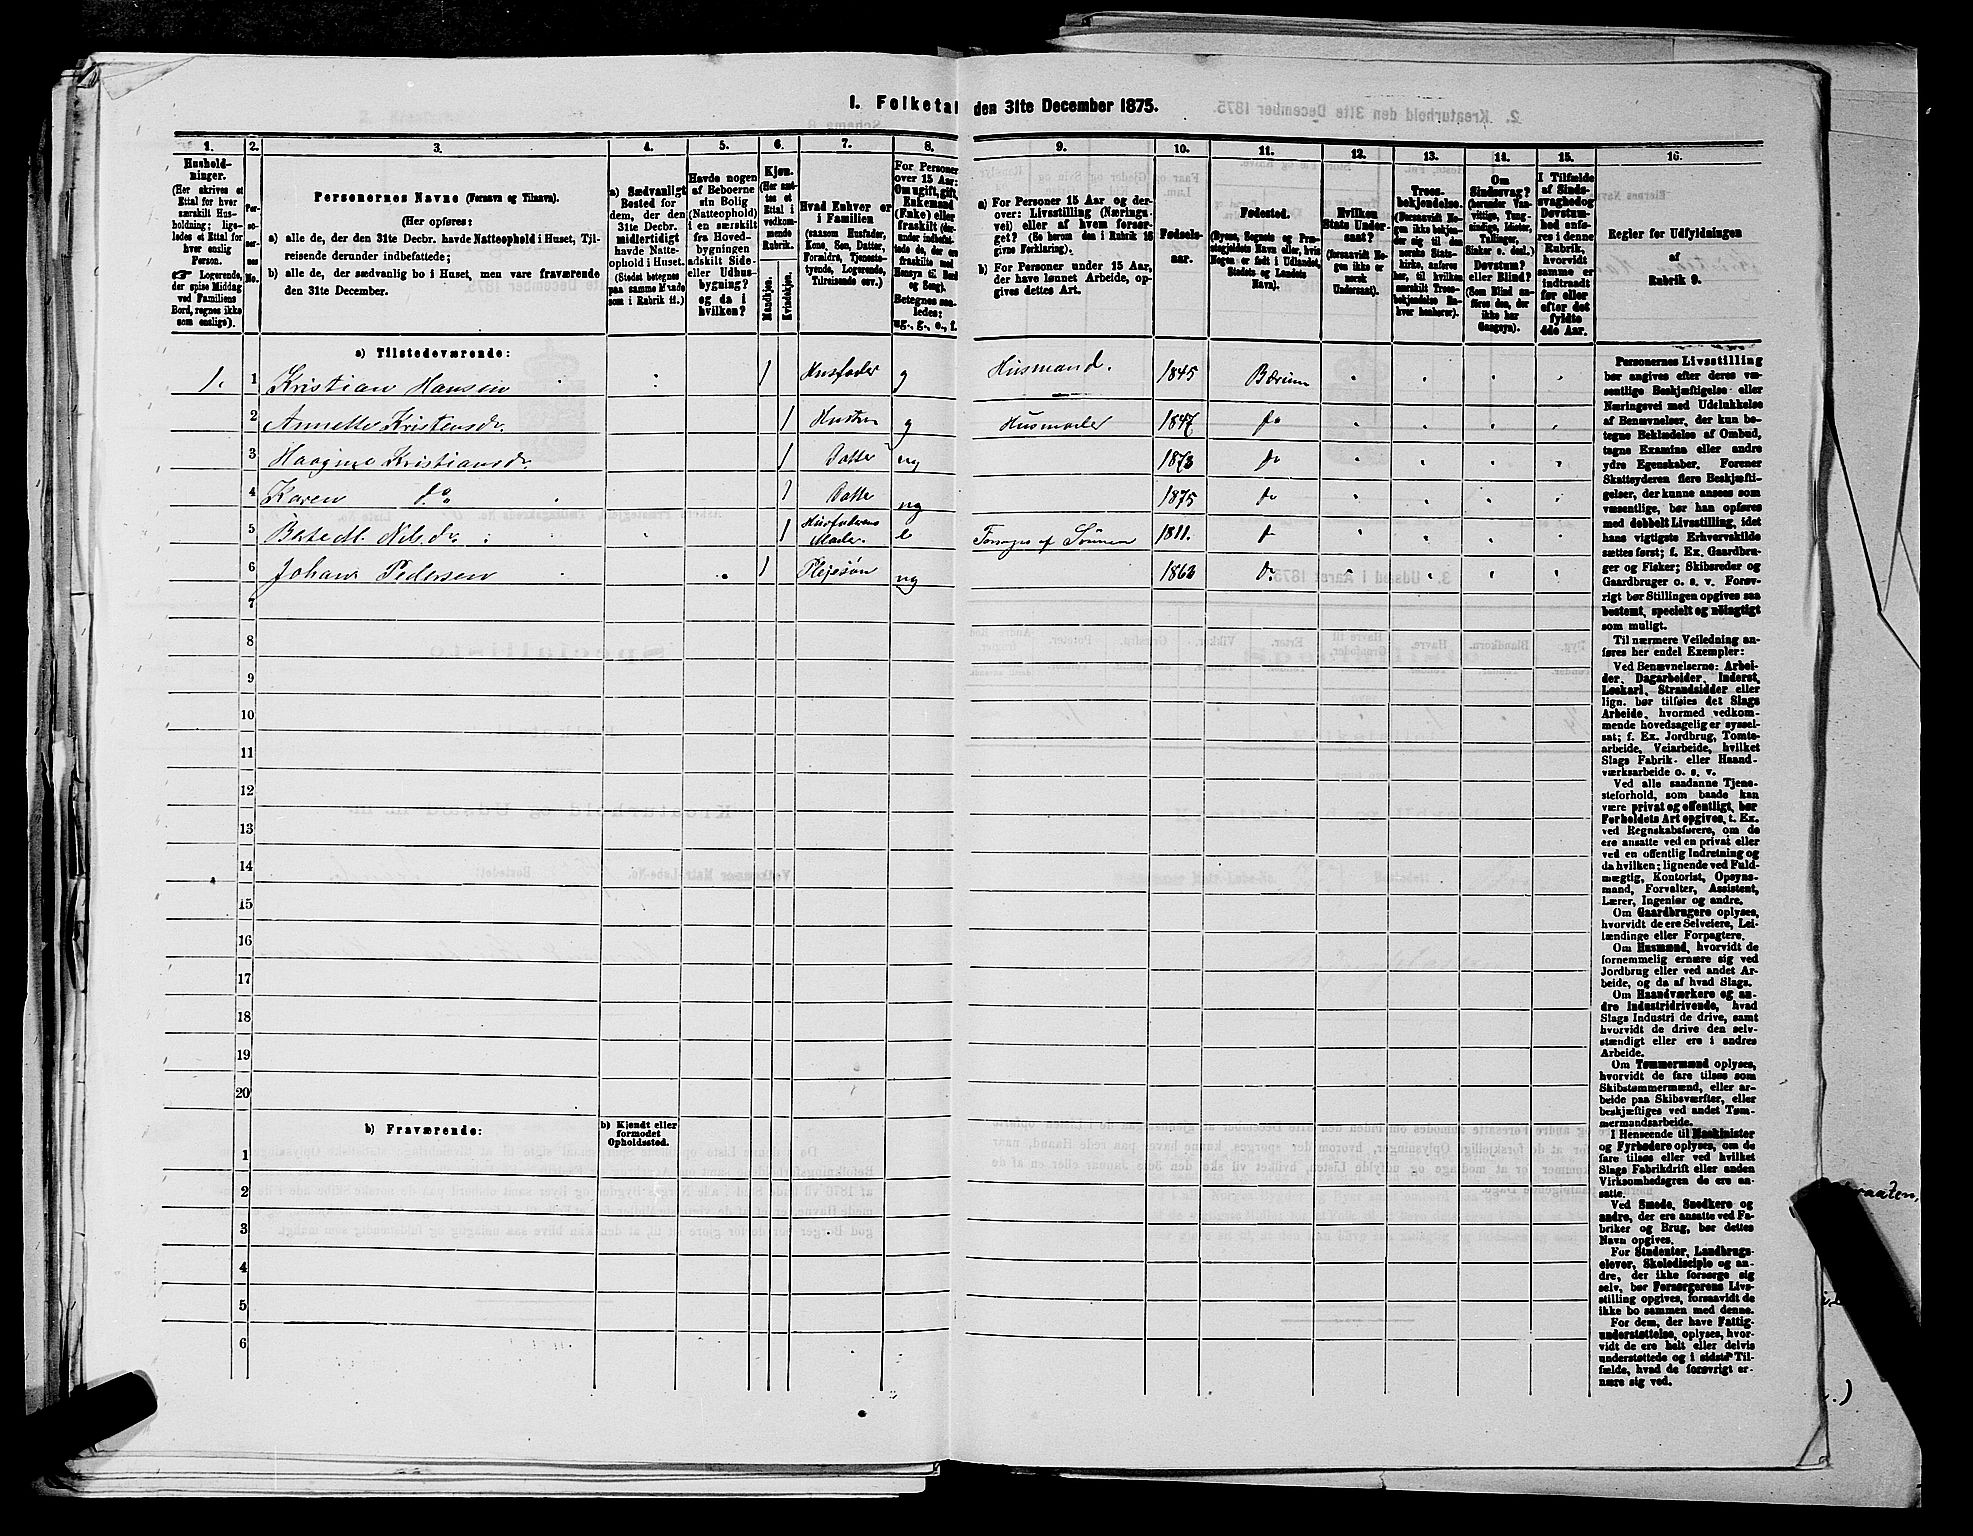 1. Folketæ
den 31te December 1875.
1.
2.
3.
4.
5.
6.
7.
8.
9.
10.
11.
12.
13.
14.
15.
16.
Hushold-
ninger.
(Her skrives et
Ettal for hver
særskilt Hus-
holdning; lige-
ledes et Ettal for
hver enslig
Person.
☞ Logerende,
der spise Middag
ved Familiens
Bord, regnes ikke
som enslige).
Personernes Navne (Fornavn og Tilnavn).
(Her opføres:
a) alle de, der den 31te Decbr. havde Natteophold i Huset, Til-
reisende derunder indbefattede;
b) alle de, der sædvanlig bo i Huset, men vare fraværende
den 31te December.
a) Sædvanligt
Bosted for
dem, der den
31te Decbr.
midlertidigt
havde Natte-
ophold i Huset.
(Stedet betegnes
paa samme Maade
som i Rubrik 11.)
Havde nogen
af Beboerne
sin Bolig
(Natteophold)
i en særskilt
fra Hoved-
bygningen
adskilt Side-
eller Udhus-
bygning?
og da i
hvilken?
Kjøn.
(Her sæt-
tes et
Ettal i
vedkom-
mende
Rubrik.
Mandkjøn.
Kvindekjøn.
Hvad Enhver er
i Familien
(saasom Husfader,
Kone, Søn, Datter,
Forældre, Tjeneste-
tyende, Logerende,
Tilreisende osv.)
For Personer
over 15 Aar:
Om ugift, gift,
Enkemand
(Enke) eller
fraskilt
Betegnes saa-
ledes:
ug., g., e., f.
a) For Personer 15 Aar og der-
over: Livsstilling (Nærings-
vei) eller af hvem forsør-
get? (Se herom den i Rubrik 16
givne Forklaring).
b) For Personer under 15 Aar,
der have lønnet Arbeide, op-
gives dettes Art.
Fødsels-
aar.
Fødested.
(Byens, Sognets og Præ-
stegjeldets Navn eller, hvis
Nogen er født i Udlandet,
Stedets og Landets
Navn).
Hvilken
Stats Under-
saat?
(forsaavidt No-
gen ikke er
norsk
Undersaat).
Troes-
bekjendelse.
(Forsaavidt No-
gen ikke bekjen-
der sig til den
norske Stats-
kirke, anføres
her, til hvilken
særskilt Troes-
bekjendelse En-
hver henhører).
Om
Sindssvag?
(herunder Van-
vittige, Tung-
sindige, Idioter,
Tullinger,
Sinker o. desl.)
Døvstum?
eller Blind?
(Som Blind an-
føres den, der
ikke har
Gangsyn).
I Tilfælde
af Sinds-
svaghed og
Døvstum-
hed anfø-
res i denne
Rubrik,
hvorvidt
samme er
indtraadt
før eller
efter det
fyldte
4de Aar.
Regler for Udfyldningen
af
Rubrik 9.
a) Tilstedeværende:
1. 1 Kristian Hansen 1 Husfader g Husmand. 1845 Bærum
2 Annette Kristensdr. 1 Hustru g Husmoder 1847 do
3 Kristiansdr. 1 Datter ug 1873 do
4 Karen do 1 Datter ug 1875 do
5 Nilsdr. 1 Husfaderens Moder. e Forsørges af Sønnen 1811. do
6 Johan Pedersen 1 Plejesøn ug 1863 do
7
8
9
10
11
12
13
14
15
16
17
18
19
20
b) Fraværende:
b) Kjendt eller
formodet
Opholdssted.
1
2
3
4
5
6
Personernes Livsstilling
bør angives efter deres væ-
sentlige Beskjæftigelse eller
Næringsvei med Udelukkelse
af Benævnelser, der kun be-
tegne Beklædelse af Ombud,
tagne Examina eller andre
ydre Egenskaber. Forener
Skatteyderen flere Beskjæfti-
gelser, der kunne ansees som
væsentlige, bør han opføres
med dobbelt Livsstilling, idet
hans vigtigste Erhvervskilde
sættes først; f. Ex. Gaardbru-
ger og Fisker; Skibsreder og
Gaardbruger o. s. v. Forøv-
rigt bør Stillingen opgives saa
bestemt, specielt og nøiagtigt
som muligt.
Til nærmere Veiledning an-
føres her endel Exempler:
Ved Benævnelserne: Arbei-
der, Dagarbeider, Inderst,
Løskarl, Strandsidder eller
lign. bør tilføies det Slags
Arbeide, hvormed vedkom-
mende hovedsagelig er syssel-
sat; f. Ex. Jordbrug, Tomte-
arbeide, Veiarbeide, hvilket
Slags Fabrik- eller Haand-
værksarbeide o. s. v.
Ved alle saadanne Tjene-
steforhold, som baade kan
være privat og offentligt, bør
Forholdets Art opgives, t. Ex.
ved Regnskabsførere, om de
ere ansatte ved en privat eller
ved en offentlig Indretning og
da hvilken; lignende ved Fuld-
mægtig, Kontorist, Opsyns-
mand, Forvalter, Assistent,
Lærer, Ingeniør og andre.
Om Gaardbrugere oplyses,
hvorvidt de ere Selveiere, Lei-
lændinge eller Forpagtere.
Om Husmænd, hvorvidt de
fornemmelig ernære sig ved
Jordbrug eller ved andet Ar-
beide, og da af hvad Slags.
Om Haandværkere og an-
dre Industridrivende, hvad
Slags Industri de drive, samt
hvorvidt de drive den selv-
stændigt eller ere i andres
Arbeide.
Om Tømmermænd oplyses,
hvorvidt de fare tilsøs som
Skibstømmermænd, eller ar-
beide paa Skibsværfter, eller
beskjæftiges ved andet Tøm-
mermandsarbeide.
I Henseende til Maskinister
og Fyrbødere oplyses, om de
fare tilsøs eller ved hvilket
Slags Fabrikdrift eller anden
Virksomhedsgren de ere an-
satte.
Ved Smede, Snedkere og
andre, der ere ansatte ved Fa-
briker og Brug, bør dettes
Navn opgives.
For Studenter, Landbrugs-
elever, Skoledisciple og an-
dre, der ikke forsørge sig
selv, bør Forsørgerens Livs-
stilling opgives, forsaavidt de
ikke bo sammen med denne.
For dem, der have Fattig-
understøttelse, oplyses, hvor-
vidt de ere helt eller delvis
understøttede og i sidste Til-
fælde, hvad de forøvrigt er-
nære sig ved.